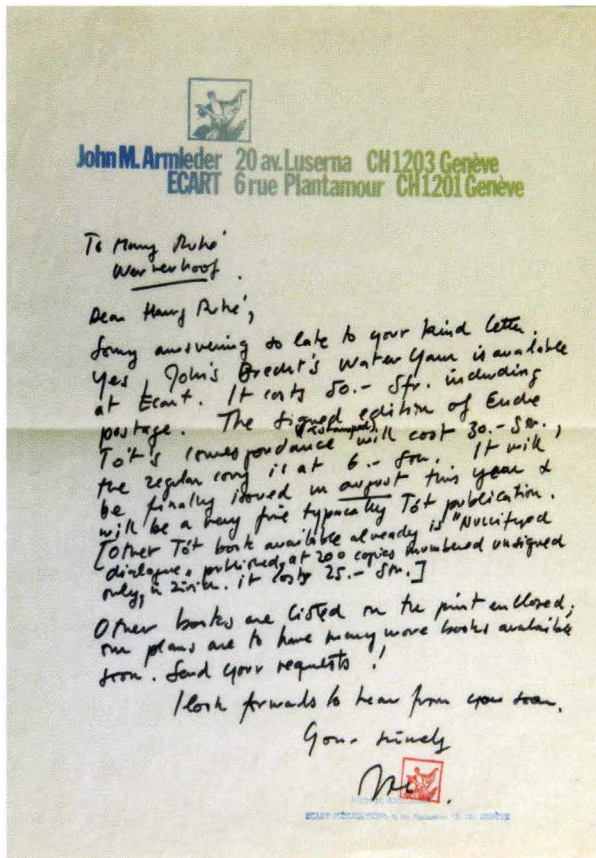 John M. Armleder 20 av. Luserna CH 1203 Genève
ECART 6 rue Plantamour CH 1201 Genève
To Harry Ruhé
Dear Harry Ruhé,
Sorry answering so late to your kind letter.
Yes, John's Brecht's Water Yam is available
at Ecart. It costs 50.- Sfr. including
postage. The signed edition of Endre
(& stamped)
Tót's correspondance will cost 30.- Sfr.,
the regular copy is at 6.- Sfr. It will
be finally issued in august this year &
will be a very fine typically Tót publication.
[Other Tót book available already is "Nullifyed
dialogue", published, at 200 copies numbered unsigned
only, in Zürich. it costs 25.- Sfr.]
Other books are listed on the print enclosed;
our plans are to have many more books available
soon. Send your requests!
I look forwards to hear from you soon.
Your sincerely